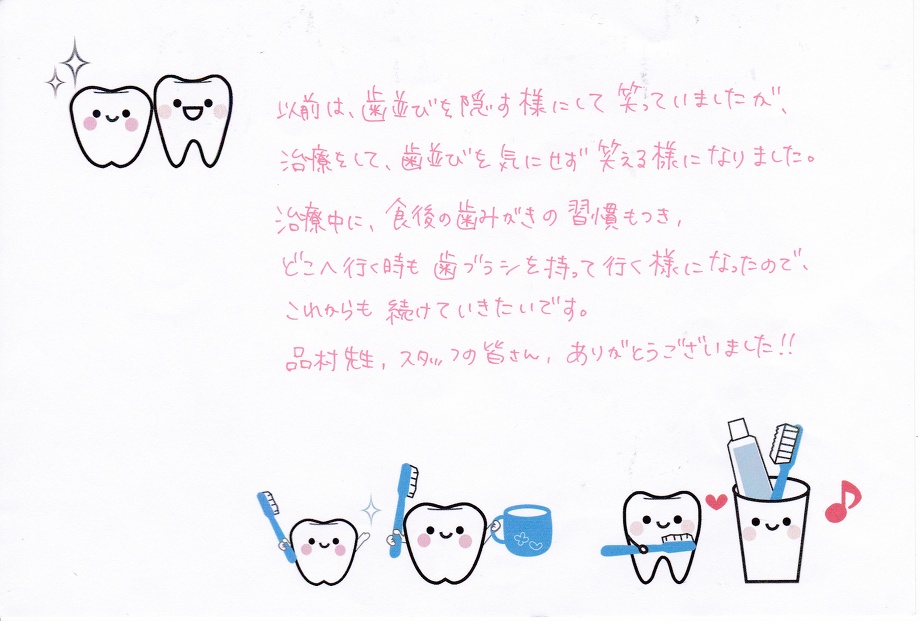 以前は、歯並びを隠す様にして笑っていましたが、
治療をして、歯並びを気にせず笑える様になりました。
治療中に、食後の歯みがきの習慣もつき,
どこへ行く時も歯ブラシを持って行く様になったので、
これからも続けていきたいです。
品村先生,スタッフの皆さん,ありがとうございました!!